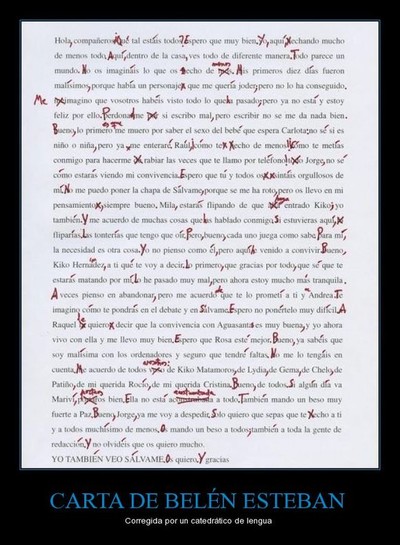 Hola, compañeros, ¿Qué tal estáis todos? Espero que muy bien, Yo, aquí, echando mucho
de menos todo, Aquí, dentro de la casa, ves todo de diferente manera, Todo parece un
mundo. No os imagináis lo que os echo de menos, Mis primeros diez días fueron
malísimos, porque había un personaje que me quería joder, pero no lo ha conseguido,
Me imagino que vosotros habéis visto todo lo que ha pasado, pero ya no está y estoy
feliz por ello. Perdonadme si si escribo mal, pero escribir no se me da nada bien.
Bueno, lo primero, me muero por saber el sexo del bebé que espera Carlota, no sé si es
niño o niña, pero ya me enteraré, Raúl, cómo te echo de menos, cómo te metías
conmigo para hacerme rabiar las veces que te llamo por teléfono, Jorge, no sé
cómo estarás viendo mi convivencia, Espero que tú y todos os sintáis orgullosos de
mí, No me puedo poner la chapa de Sálvame, porque se me ha roto, pero os llevo en mi
pensamiento, siempre bueno, Mila, estarás flipando de que ha entrado Kiko, yo
también, Y me acuerdo de muchas cosas que hablado conmigo, Si estuvieras aquí,
fliparías, Las tonterías que tengo que oír, Pero, bueno, cada uno juega como sabe, Para mí,
la necesidad es otra cosa, Yo no pienso como él, pero aquí ha venido a convivir, Bueno,
Kiko Hernández, a ti qué te voy a decir, Lo primero, que gracias por todo, que sé que te
estarás matando por mí, Lo he pasado muy mal, pero ahora estoy mucho más tranquila,
A veces pienso en abandonar, pero me acuerdo de que te lo prometí a ti y a Andrea, Te
imagino cómo te pondrás en el debate y en Sálvame, Espero no ponértelo muy difícil, A
Raquel le quiero decir que la convivencia con Aguasantas es muy buena, y yo ahora
vivo con ella y me llevo muy bien, Espero que Rosa esté mejor, Bueno, ya sabéis que
soy malísima con los ordenadores y seguro que tendré faltas, No me lo tengáis en
cuenta, Me acuerdo de todos vosotros: de Kiko Matamoros, de Lydia, de Gema, de Chelo, de
Patiño, de mi querida Rocío, de mi querida Cristina, Bueno, de todos, Si algún día va
Mariví, portaos bien, Ella no está acostumbrada a todo, También mando un beso muy
fuerte a Paz, Bueno, Jorge, ya me voy a despedir, Solo quiero que sepas que te echo a ti
y a todos muchísimo de menos, O mando un beso a todos, también a toda la gente de
redacción, Y no olvidéis que os quiero mucho.
YO TAMBIÉN VEO SÁLVAME, Os quiero, Y gracias
CARTA DE BELÉN ESTEBAN
Corregida por un catedrático de lengua